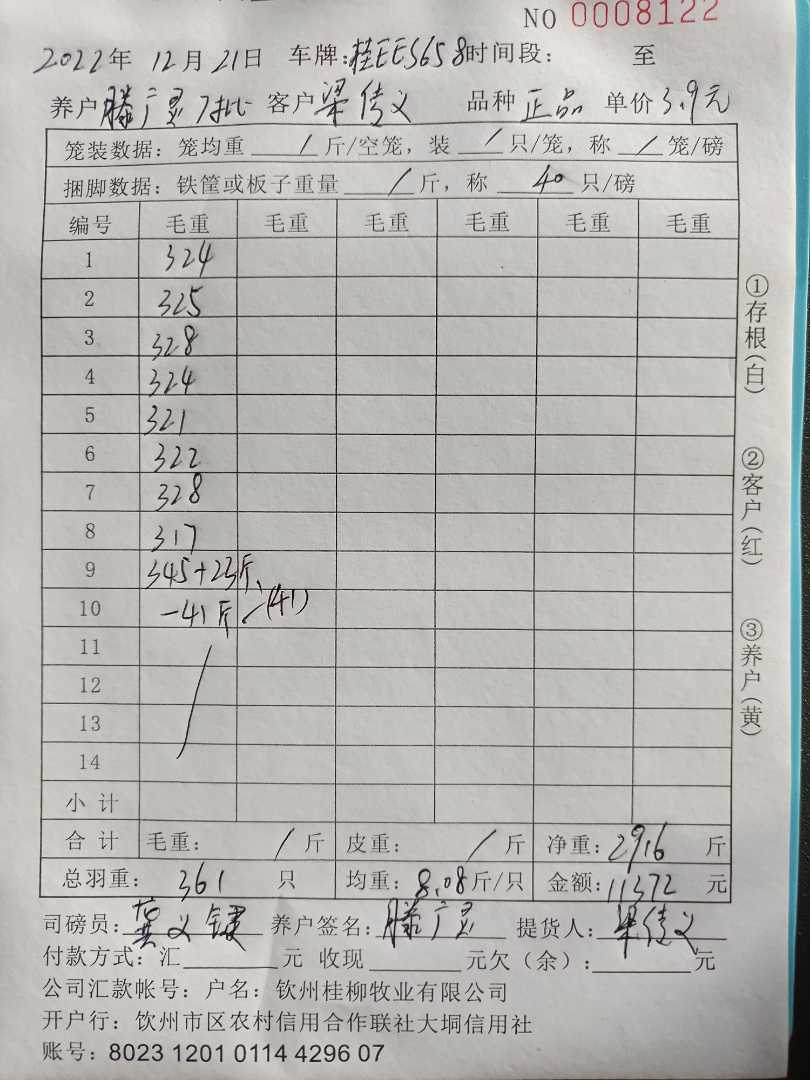 NO 0008122
2022年 12月21日 车牌:桂EE5658 时间段: 至
养户 滕广灵7批 客户 梁倩义 品种 正品 单价 3.9元
笼装数据：笼均重 / 斤/空笼，装 / 只/笼，称 / 笼/磅
捆脚数据：铁筐或板子重量 / 斤，称 40 只/磅
编号 毛重 毛重 毛重 毛重 毛重 毛重
1 324
2 325
3 328
4 324
5 321
6 322
7 328
8 317
9 345+23斤
10 -41斤 (41)
11
12
13
14
小 计
合 计 毛重： / 斤 皮重： / 斤 净重：2916 斤
总羽重： 361 只 均重：8.08斤/只 金额：11372 元
司磅员： 义键 养户签名：滕广灵 提货人：梁倩义
付款方式：汇 元 收现 元欠（余）： 元
公司汇款帐号：户名：钦州桂柳牧业有限公司
开户行：钦州市区农村信用合作联社大垌信用社
账号：8023 1201 0114 4296 07
①存根(白)
②客户(红)
③养户(黄)